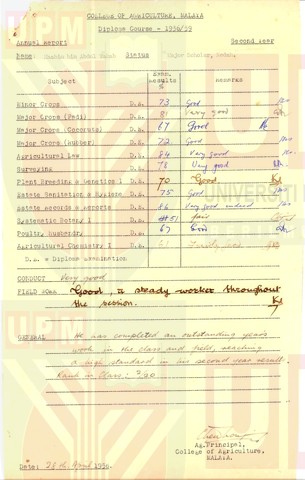 COLLEGE OF AGRICULTURE, MALAYA
Diploma Course - 1958/59
Annual Report Second Year
Name: Status
Subject Exam. Results % Remarks
Minor Crops D.E. 73 Good
Major Crops (Padi) D.E. 81 Very good
Major Crops (Coconuts) D.E. 67 Good
Major Crops (Rubber) D.E. 72 Good
Agricultural Law D.E. 84 Very good
Surveying D.E. 78 Very good
Plant Breeding & Genetics I D.E. 70 Good
Estate Sanitation & Hygiene D.E. 75 Good
Estate Records & Reports D.E. 86 Very good indeed
Systematic Botany I D.E. 51 Fair
Poultry Husbandry D.E. 67 Good
Agricultural Chemistry I D.E. 61
D.E. = Diploma Examination
CONDUCT Very good
FIELD WORK Good, a steady worker throughout
the session.
GENERAL He has completed an outstanding year's
work in the class and field, reaching
a high standard in his second year result.
Rank in Class: 2/20
Ag. Principal,
College of Agriculture,
MALAYA.
Date: 28th April
UPM